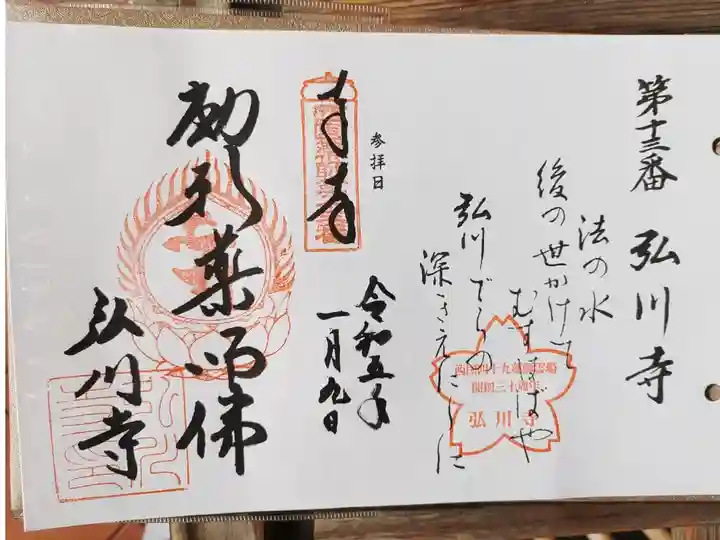 第十三番 弘川寺
法の水
後の世かけて
むすばばや
弘川でらの
深きえにしに
西国四十九薬師霊場
開創三十周年
弘川寺
参拝日
奉拝
令和五年
一月九日
薬師佛
弘川寺